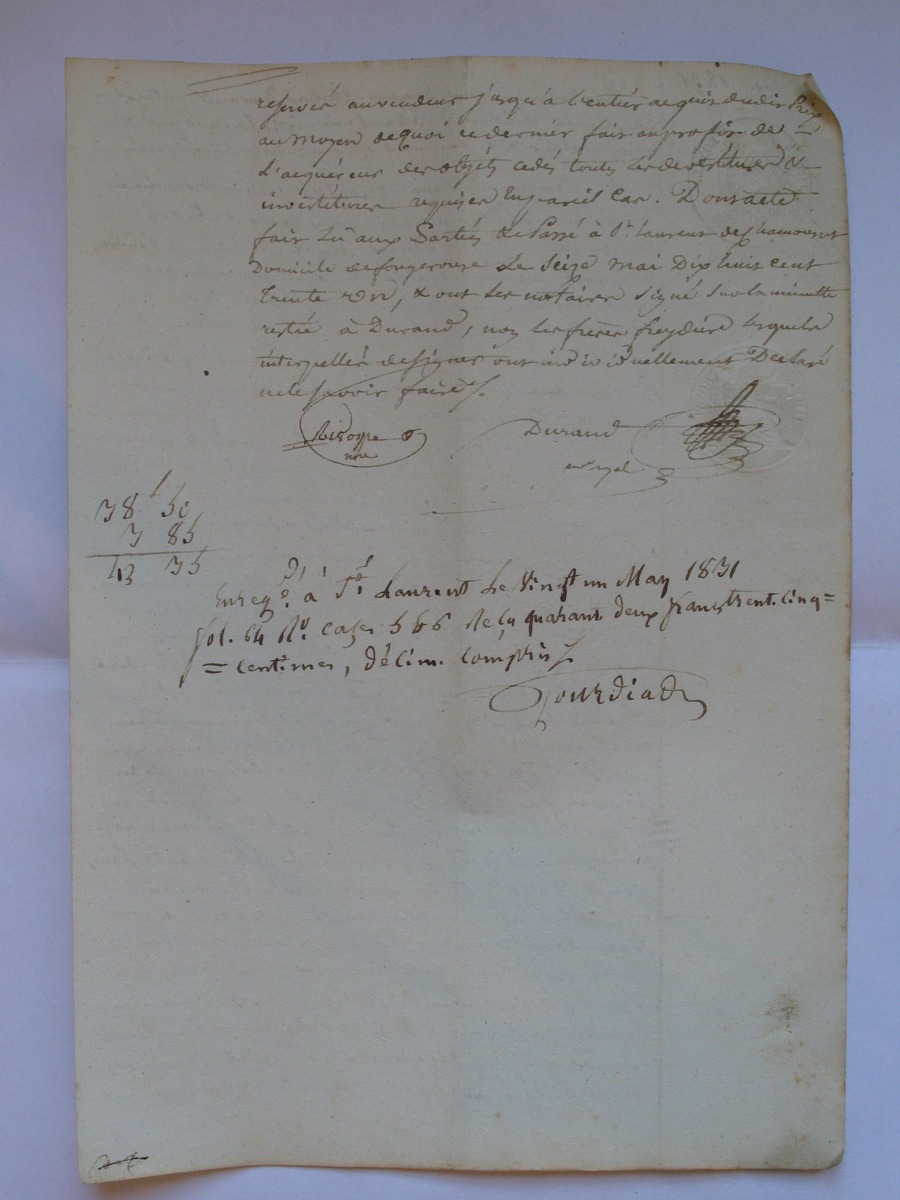 reservés au vendeur jusqu'à l'entier acquis dudit prix
au moyen de quoi ce dernier fait au profit de
L'acquéreur des objets cédés toutes les devestitures &
investitures requises En pareil Cas. Dont acte
fait Lu aux Parties & Passé à St Laurent de Chamousset
Domicile de fougerouse Le Seize mai Dix huit cent
Trente un, & ont les notaires signé Sur la minutte
restée à Durand, non les freres freydiere lesquels
interpellés de signer ont individuellement Déclaré
ne le savoir faire.
nre
Durand
nre royal
38 f 50
3 85
42 35
Enregé. à St. Laurent Le Vingt un May 1831
fol. 64 Ro. cases 5 & 6 Reçu quarant deux francs trent. cinq =
= centimes, décim. compris